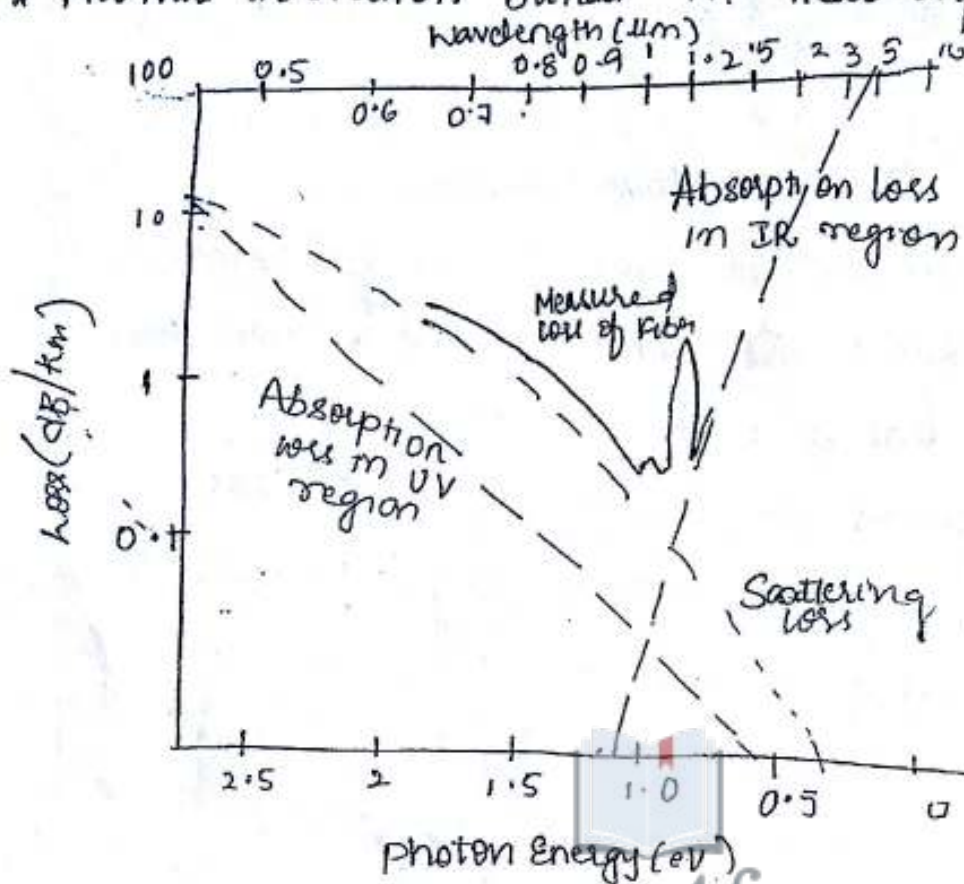 Wavelength (μm)
100 0.5 0.8 0.9 1 1.2 1.5 2 3 5 10
0.6 0.7
10
1
0.1
Loss (dB/km)
Absorption loss
in IR region
Measured
loss of Fiber
Absorption
loss in UV
region
Scattering
loss
2.5 2 1.5 1.0 0.5 0
Photon Energy (eV)